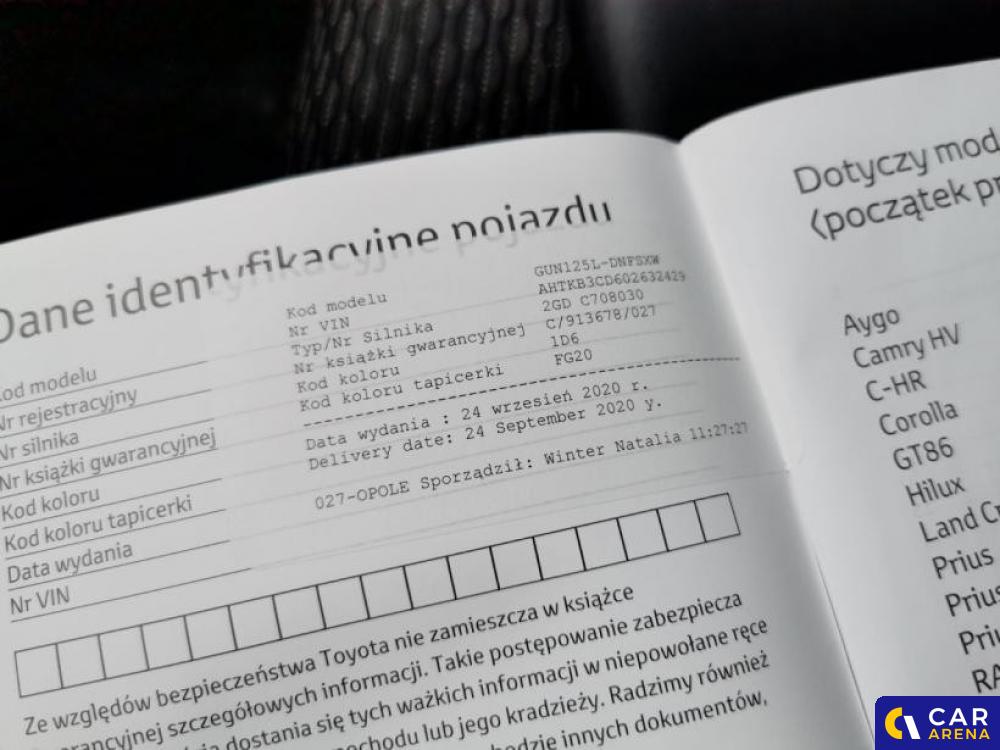 Dane identyfikacyjne pojazdu
Kod modelu GUN125L-DNFSXW
Nr VIN AHTKB3CD602632429
Typ/Nr Silnika 2GD C708030
Nr książki gwarancyjnej C/913678/027
Kod koloru 1D6
Kod koloru tapicerki FG20
Data wydania : 24 wrzesień 2020 r.
Delivery date: 24 September 2020 y.
027-OPOLE Sporządził: Winter Natalia 11:27:27
Kod modelu
Nr rejestracyjny
Nr silnika
Nr książki gwarancyjnej
Kod koloru
Kod koloru tapicerki
Data wydania
Nr VIN
Ze względów bezpieczeństwa Toyota nie zamieszcza w książce
gwarancyjnej szczegółowych informacji. Takie postępowanie zabezpiecza
dostania się tych ważkich informacji w niepowołane ręce
lub jego kradzieży. Radzimy również
innych dokumentów,
Dotyczy mod
(początek pr
Aygo
Camry HV
C-HR
Corolla
GT86
Hilux
Land Cr
Prius
Prius
Pri
RA
CAR
ARENA